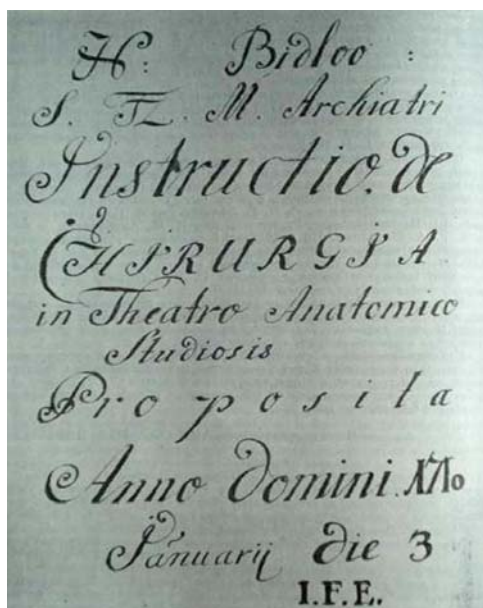 N: Bidloo :
S. TZ. M. Archiatri
Instructio. de
CHIRURGIA
in Theatro Anatomico
Studiosis
Proposita
Anno Domini. 1710
Januarij die 3
I.F.E.